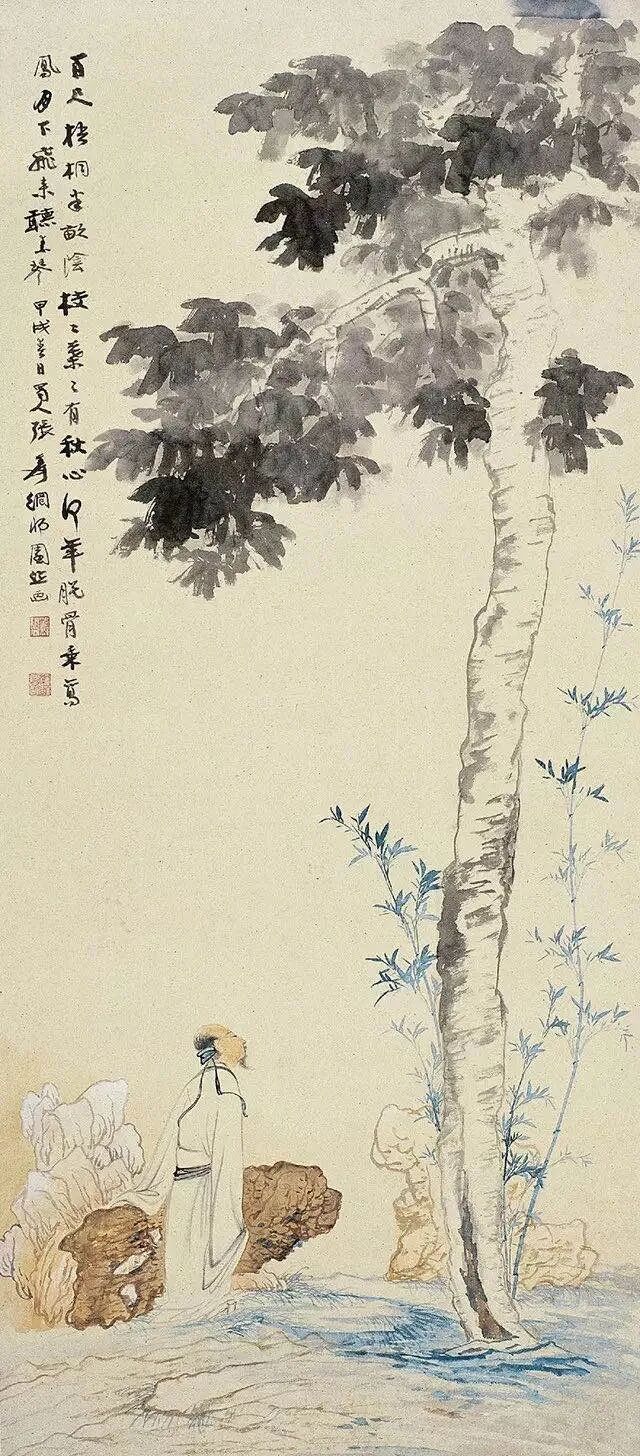 百尺梧桐半畝陰枝〻葉〻有秋心何年脫骨乘鸞
鳳月下飛來聽玉琴 甲戌春日蜀人張爰網師園並畫